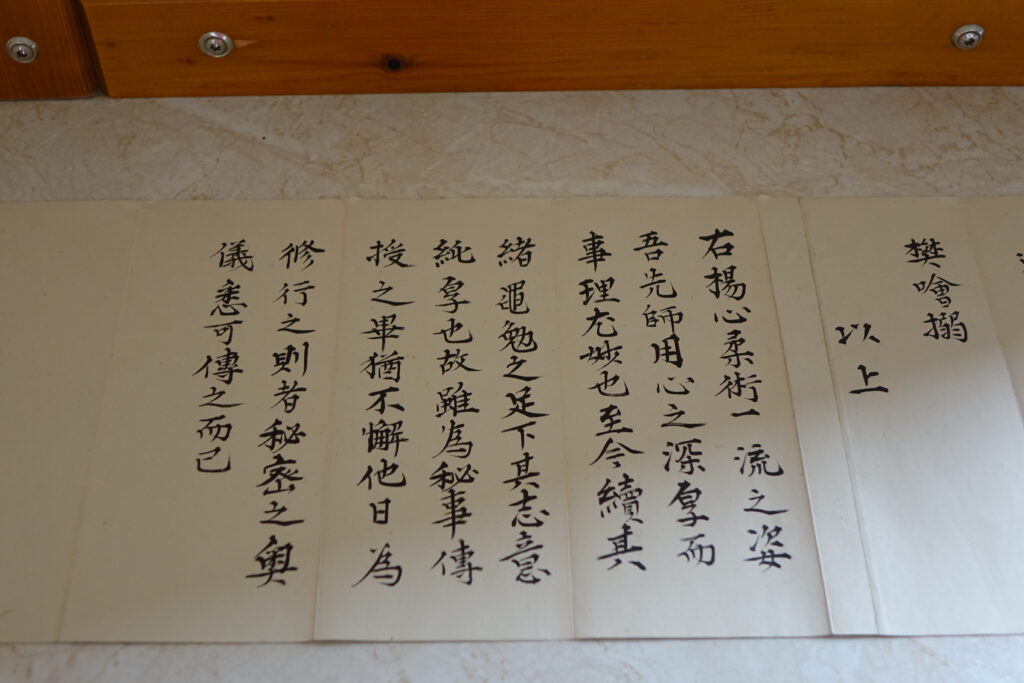 樊噲搦
以上
右揚心柔術一流之姿
吾先師用心之深厚而
事理尤妙也至今續其
緒黽勉之足下其志意
純厚也故雖為秘事傳
授之畢猶不懈他日為
修行之則者秘密之奥
儀悉可傳之而已